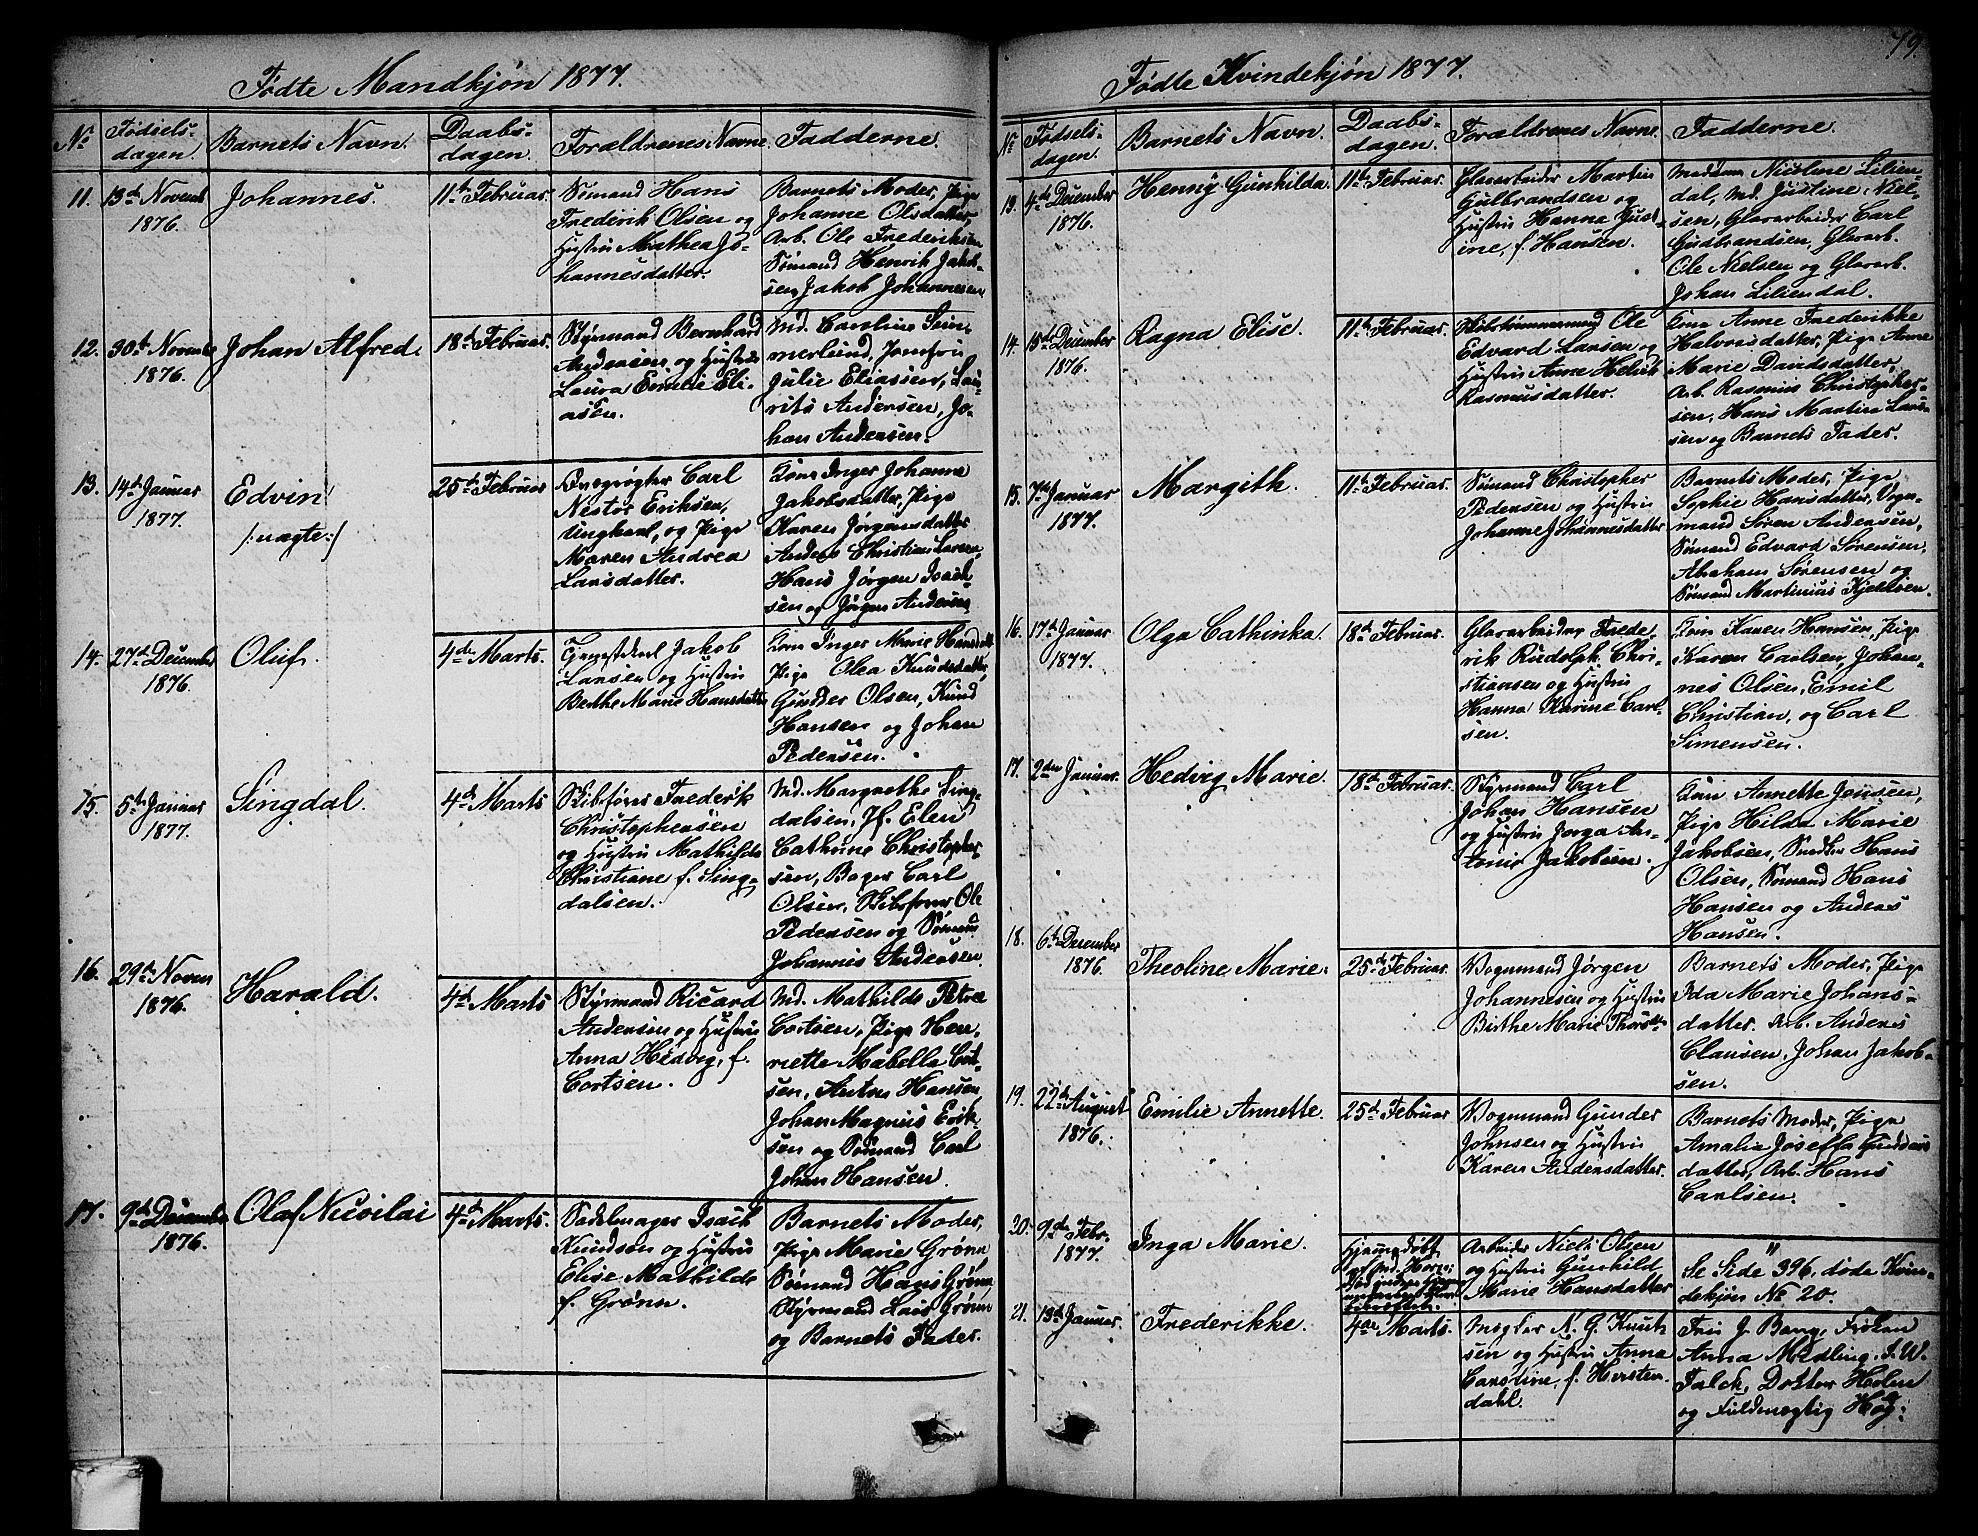 79.
Fødte Mandkjøn 1877.
Nr. Fødsels-dagen. Barnets Navn. Daabs-dagen. Forældrenes Navne. Fadderne.
11. 13de Novemb 1876. Johannes. 11te Februar.
Sømand Hans
Frederik Olsen og
Hustru Mathea Jo-
hannesdatter.
Barnets Moder, Pige
Johanne Olsdatter,
Arb. Ole Frederiksen
Sømand Henrik Jakob-
sen, Jakob Johannesen
12. 30te Novemb 1876. Johan Alfred. 18de Februar.
Styrmand Bernhard
Andersen og Hustru
Laura Emilie Eli-
asen.
Md. Caroline Sem-
merlund, Jomfru
Julie Eliassen, Lau-
rits Andersen, Jo-
han Andersen.
13. 14de Januar 1877. Edvin /:uægte:/ 25de Februar
Carl
Nestor Eriksen,
Ungkarl, og Pige
Maren Andrea
Larsdatter.
Kone Inger Johanne
Jakobsdatter, Pige
Karen Jørgensdatter
Anders Christian Larsen,
Hans Jørgen Isak-
sen og Jørgen Andersen
14. 27de December 1876. Oluf. 4de Marts.
Jakob
Larsen og Hustru
Berthe Marie Hansdatter
Kone Inger Marie Hansdatt
Pige Olea Knudsdatter,
Gunder Olsen, Knud
Hansen og Johan
Pedersen.
15. 5te Januar 1877. Singdal. 4de Marts
Skibsfører Frederik
Christophersen
og Hustru Mathilde
Christiane f. Sing-
dalsen.
Md. Margrethe Sing-
dalsen, Jf. Elen
Cathrine Christopher-
sen, Bager Carl
Olsen, Skibsfører Ole
Pedersen og Sømand
Johannes Andersen
16. 29de Novem 1876. Harald. 4de Marts
Styrmand Ricard
Andersen og Hustru
Anna Hedvig, f.
Cortsen.
Md. Mathilde Petrea
Cortsen, Pige Hen-
riette Mabella Cort-
sen, Anton Hansen
Johan Magnus Erik-
sen og Sømand Carl
Johan Hansen.
17. 9de December 1876. Olaf Nicolai 4de Marts.
Sadelmager Isach
Knudsen og Hustru
Elise Mathilde
f. Grønn.
Barnets Moder,
Pige Marie Grønn
Sømand Hans Grønn
Styrmand Lars Grønn
og Barnets Fader.
Fødte Kvindekjøn 1877.
Nr. Fødsels-dagen. Barnets Navn. Daabs-dagen. Forældrenes Navne. Fadderne.
13. 4de December 1876. Henny Gunhilda. 11te Februar.
Glasarbeider Martin
Gulbrandsen og
Hustru Hanna Just-
ine, f. Hansen.
Madam Nicoline Lilien-
dal, Md. Justine Niel-
sen, Glasarbeider Carl
Gudbrandsen, Glasarb.
Ole Nielsen og Glasarb.
Johan Liliendal.
14. 15de December 1876. Ragna Elise. 11te Februar.
Skibstømmermand Ole
Edvard Larsen og
Hustru Anne Helvik
Rasmusdatter.
Kone Anne Frederikke
Halvorsdatter, Pige Anne
Marie Davidsdatter,
Arb. Rasmus Christopher-
sen, Hans Martin Lars-
sen og Barnets Fader.
15. 7de Januar 1877. Margith. 11te Februar.
Sømand Christopher
Pedersen og Hustru
Johanne Johannesdatter
Barnets Moder, Pige
Sophie Hansdatter, Vogn-
mand Søren Andersen,
Sømand Edvard Sørensen,
Abraham Sørensen og
Sømand Martinius Kjeldsen.
16. 17de Januar 1877. Olga Cathinka. 18de Februar.
Glasarbeider Frede-
rik Rudolph Chri-
stiansen og Hustru
Hanna Karine Carl-
sen.
Kone Karen Hansen, Pige
Karen Carlsen, Johan-
nes Olsen, Emil
Christian, og Carl
Simensen.
17. 2den Januar. Hedvig Marie. 18de Februar.
Styrmand Carl
Johan Hansen
og Hustru Jorga An-
tonie Jakobsen.
Kone Annette Jensen,
Pige Hilda Marie
Jakobsen, Snedker Hans
Olsen, Sømand Hans
Hansen og Anders
Hansen.
18. 6te December 1876. Theoline Marie. 25de Februar.
Vognmand Jørgen
Johannesen og Hustru
Birthe Marie Thorsdtr
Barnets Moder, Pige
Ida Marie Johans-
datter. Arb. Anders
Clausen, Johan Jakob-
sen.
19. 22de August 1876. Emilie Annette. 25de Februar
Vognmand Gunder
Johnsen og Hustru
Karen Andersdatter.
Barnets Moder, Pige
Amalie Josefa Gunders
datter, Arb. Hans
Carlsen.
20. 9de Febr. 1877. Inga Marie. Hjemmedøbt
Arbeider Niels Olsen
og Hustru Gunhild
Marie Hansdatter
"
Se Side 396, døde Kvin-
dekjøn No 20.
21. 13de Januar. Frederikke. 4de Marts.
Mægler N. G. Knut-
sen og Hustru Anna
Caroline, f. Hersten-
dahl.
Fru J. Bang, Frøken
Anna Medling, I. W.
Falck, Doktor Holm
og Fuldmægtig Høg.